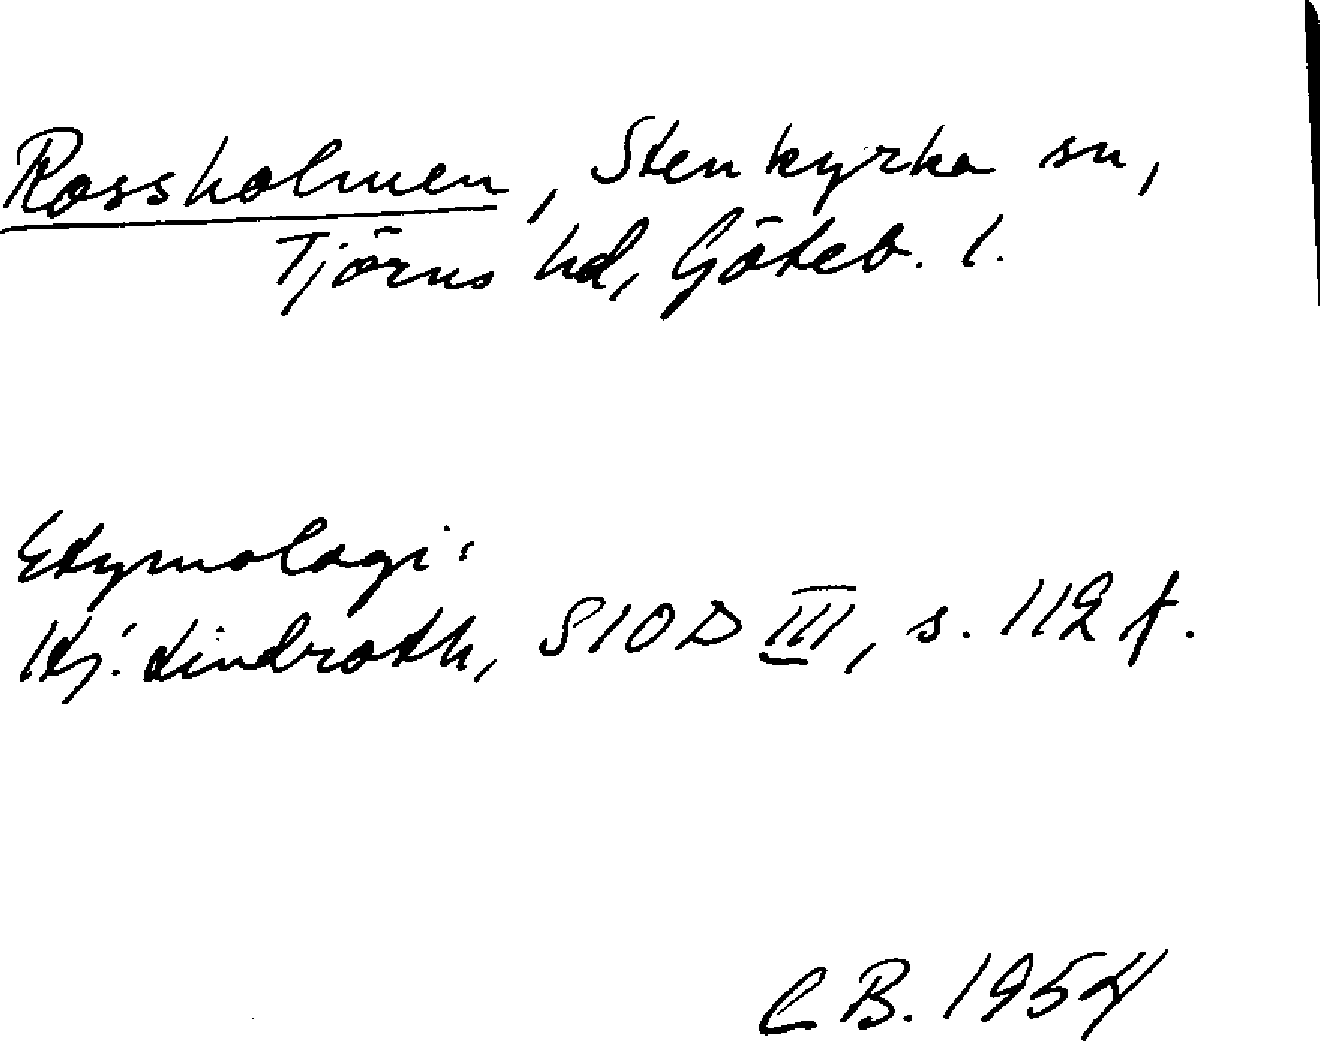 Rossholmen, Stenkyrka sn,
Tjörns hd, Göteb. l.
Etymologi:
Hj. Lindroth, SIOD III, s. 112 f.
C B. 1954